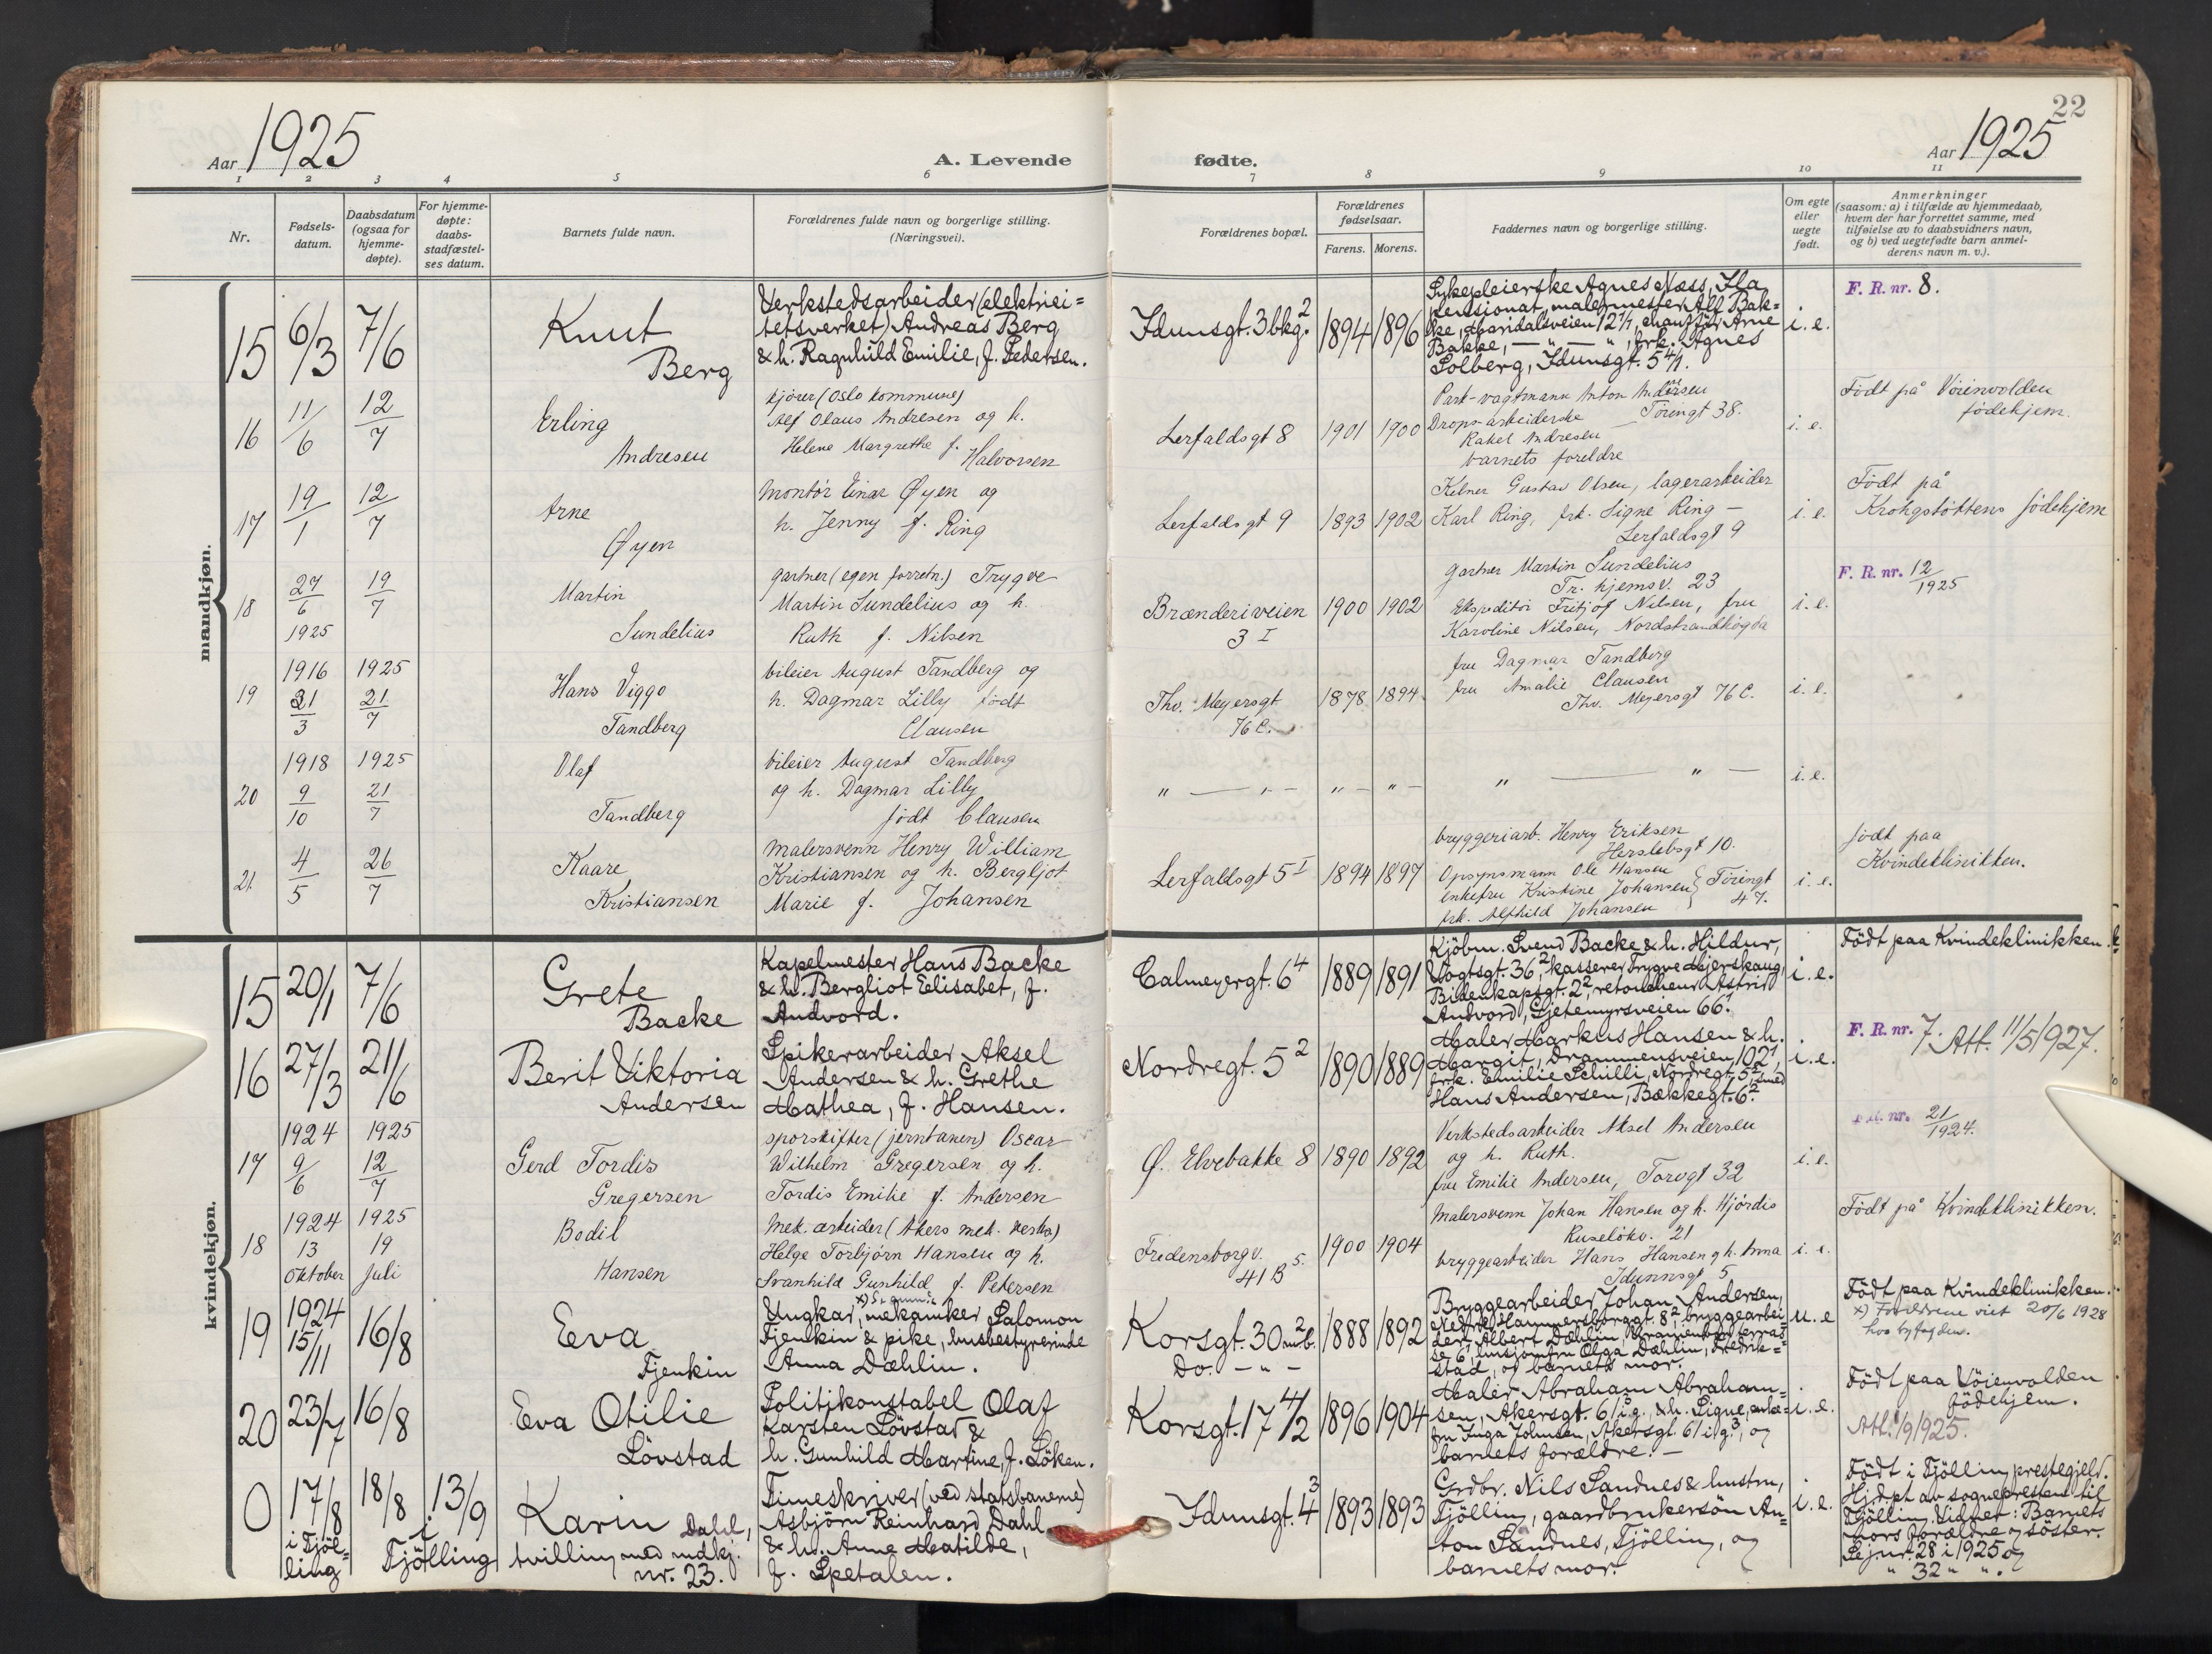 22
Aar 1925
A. Levende fødte.
Aar 1925
1 2 3 4 5 6 7 8 9 10 11
Nr.
Fødsels-
datum.
Daabsdatum
(ogsaa for
hjemme-
døpte).
For hjemme-
døpte:
daabs-
stadfæstel-
ses datum.
Barnets fulde navn.
Forældrenes fulde navn og borgerlige stilling.
(Næringsvei).
Forældrenes bopæl.
Forældrenes
fødselsaar.
Farens. Morens.
Faddernes navn og borgerlige stilling.
Om egte
eller
uegte
født.
Anmerkninger
(saasom: a) i tilfælde av hjemmedaab,
hvem der har forrettet samme, med
tilføielse av to daabsvidners navn,
og b) ved uegtefødte barn anmel-
derens navn m. v.).
mandkjøn.
15
6/3
7/6
Knut
Berg
Verkstedsarbeider (elektrici=
tetsverket) Andreas Berg
& h. Ragnhild Emilie, f. Pedersen.
Idunsgt. 3 bkg. 2
1894 1896
Sykepleierske Agnes Næss, Ila
pensionat, malermester Alf Bak=
ke, Maridalsveien 12 1/1, chauffør Arne
Bakke, — " — ", frk. Agnes
Solberg, Idunsgt. 5 4/1.
i. e.
F. R. nr. 8.
16
11/6
12/7
Erling
Andresen
kjører (Oslo kommune)
Alf Olaus Andresen og h.
Helene Margrethe f. Halvorsen
Lerfaldsgt 8
1901 1900
Park-vagtmann Anton Andresen
Drops-arbeiderske — Töiengt 38.
Rakel Andresen
barnets foreldre
i. e.
Födt på Vöienvolden
födehjem.
17
19/1
12/7
Arne
Øyen
Montör Einar Øyen og
h. Jenny f. Ring
Lerfaldsgt 9
1893 1902
Kelner Gustav Olsen, lagerarbeider
Karl Ring, frk. Signe Ring —
Lerfaldsgt 9
i. e.
Födt på
Krohgstöttens födehjem
18
27/6
1925
19/7
Martin
Sundelius
gartner (egen forretn.) Trygve
Martin Sundelius og h.
Ruth f. Nilsen
Brænderiveien
3 I
1900 1902
Gartner Martin Sundelius
Tr. hjemsv. 23
Ekspeditör Fritjof Nilsen, fru
Karoline Nilsen, Nordstrandhögda
i. e.
F. R. nr. 12/1925
19
1916
31/3
1925
21/7
Hans Viggo
Tandberg
bileier August Tandberg og
h. Dagmar Lilly födt
Clausen
Thv. Meyersgt
76 C.
1878 1894
fru Dagmar Tandberg
fru Amalie Clausen
Thv. Meyersgt 76 C.
i. e.
20
1918
9/10
1925
21/7
Olaf
Tandberg
bileier August Tandberg
og h. Dagmar Lilly
födt Clausen
" — " — " — " —
" — " —
i. e.
21.
4/5
26/7
Kaare
Kristiansen
Malersvenn Henry William
Kristiansen og h. Bergljot
Marie f. Johansen
Lerfaldsgt 5 I
1894 1897
bryggeriarb. Henry Eriksen
Herslebsgt 10.
Opsynsmann Ole Hansen
enkefru Kristine Johansen } Töiengt
frk. Alfhild Johansen } 47.
i. e.
födt paa
Kvindeklinikken.
kvindekjøn.
15
20/1
7/6
Grete
Backe
Kapelmester Hans Backe
& h. Bergliot Elisabet, f.
Andvord.
Calmeyergt. 6 4
1889 1891
Kjöbm. Svend Backe & h. Hildur,
Vogtsgt. 36 2, kasserer Trygve Mjerskaug,
Bidenkapsgt. 2 2, retoucheur Astrid
Andvord, Gjetemyrsveien 66 1.
i. e.
Födt paa Kvindeklinikken.
16
27/3
21/6
Berit Viktoria
Andersen
Spikerarbeider Aksel
Andersen & h. Grethe
Mathea, f. Hansen.
Nordregt. 5 2
1890 1889
Maler Markus Hansen & h.
Margit, Drammensveien 102 1,
frk. Emilie Schilli, Nordregt. 5 2, smed
Hans Andersen, Bækkegt. 6 2.
i. e.
F. R. nr. 7. Att. 11/5 1927.
17
1924
9/6
1925
12/7
Gerd Tordis
Gregersen
sporskifter (jernbanen) Oscar
Wilhelm Gregersen og h.
Tordis Emilie f. Andersen
Ø. Elvebakke 8
1890 1892
Verkstedsarbeider Aksel Andersen
og h. Ruth.
fru Emilie Andersen, Torvgt 32
i. e.
F. R. nr. 21/1924.
18
1924
13
oktober
1925
19
juli
Bodil
Hansen
Mek. arbeider (Akers mek. verksted)
Helge Torbjörn Hansen og h.
Svanhild Gunhild f. Petersen
Fredensborgv.
41 B 5.
1900 1904
Malersvenn Johan Hansen og h. Hjördis
Ruselökv. 21
bryggearbeider Hans Hansen og h. Anna
Idunnsgt 5
i. e.
Födt på Kvindeklinikken.
19
1924
15/11
16/8
Eva
Fjenkin
Ungkar, mekaniker Salomon
Fjenkin & pike, husbestyrerinde
Anna Dæhlin.
Korsgt. 30 m.b. 2
Do. — " —
1888 1892
Bryggearbeider Johan Andersen,
Nedre Hammersborggt. 8 2, bryggearbei=
der Albert Dæhlin,
se 6 1, husjomfru Olga Dæhlin, Fredrik=
stad, og barnets mor.
u. e
Födt paa Kvindeklinikken.
x) Foreldrene viet 20/6 1928
hos byfogden.
20
23/7
16/8
Eva Otilie
Lövstad
Politikonstabel Olaf
Karsten Lövstad &
h. Gunhild Martine, f. Löken.
Korsgt. 17 4/2
1896 1904
Maler Abraham Abraham=
sen, Akersgt. 61 i.g., & h. Signe, enke=
fru Inga Johnsen, Akersgt. 61 i g. 3, og
barnets forældre. —
i. e.
Födt paa Vöienvolden
födehjem.
Att. 1/9 1925.
0
17/8
i Tjöl=
ling
18/8
13/9
i
Tjölling
Karin Dahl,
tvilling med mdkj.
nr. 23.
Timeskriver (ved statsbanerne)
Asbjörn Reinhard Dahl
& h. Anne Matilde,
f. Spetalen.
Idunsgt. 4 3
1893 1893
Grdbr. Nils Sandnes & hustru,
Tjölling, gaardbrukersön An=
ton Sandnes, Tjölling, og
barnets mor.
i. e.
Födt i Tjölling prestegjeld.
Hjdpt av sognepresten til
Tjölling. Vidner: Barnets
mors forældre og söster.
Se jnr. 28 i 1925 og
" 32 " ".